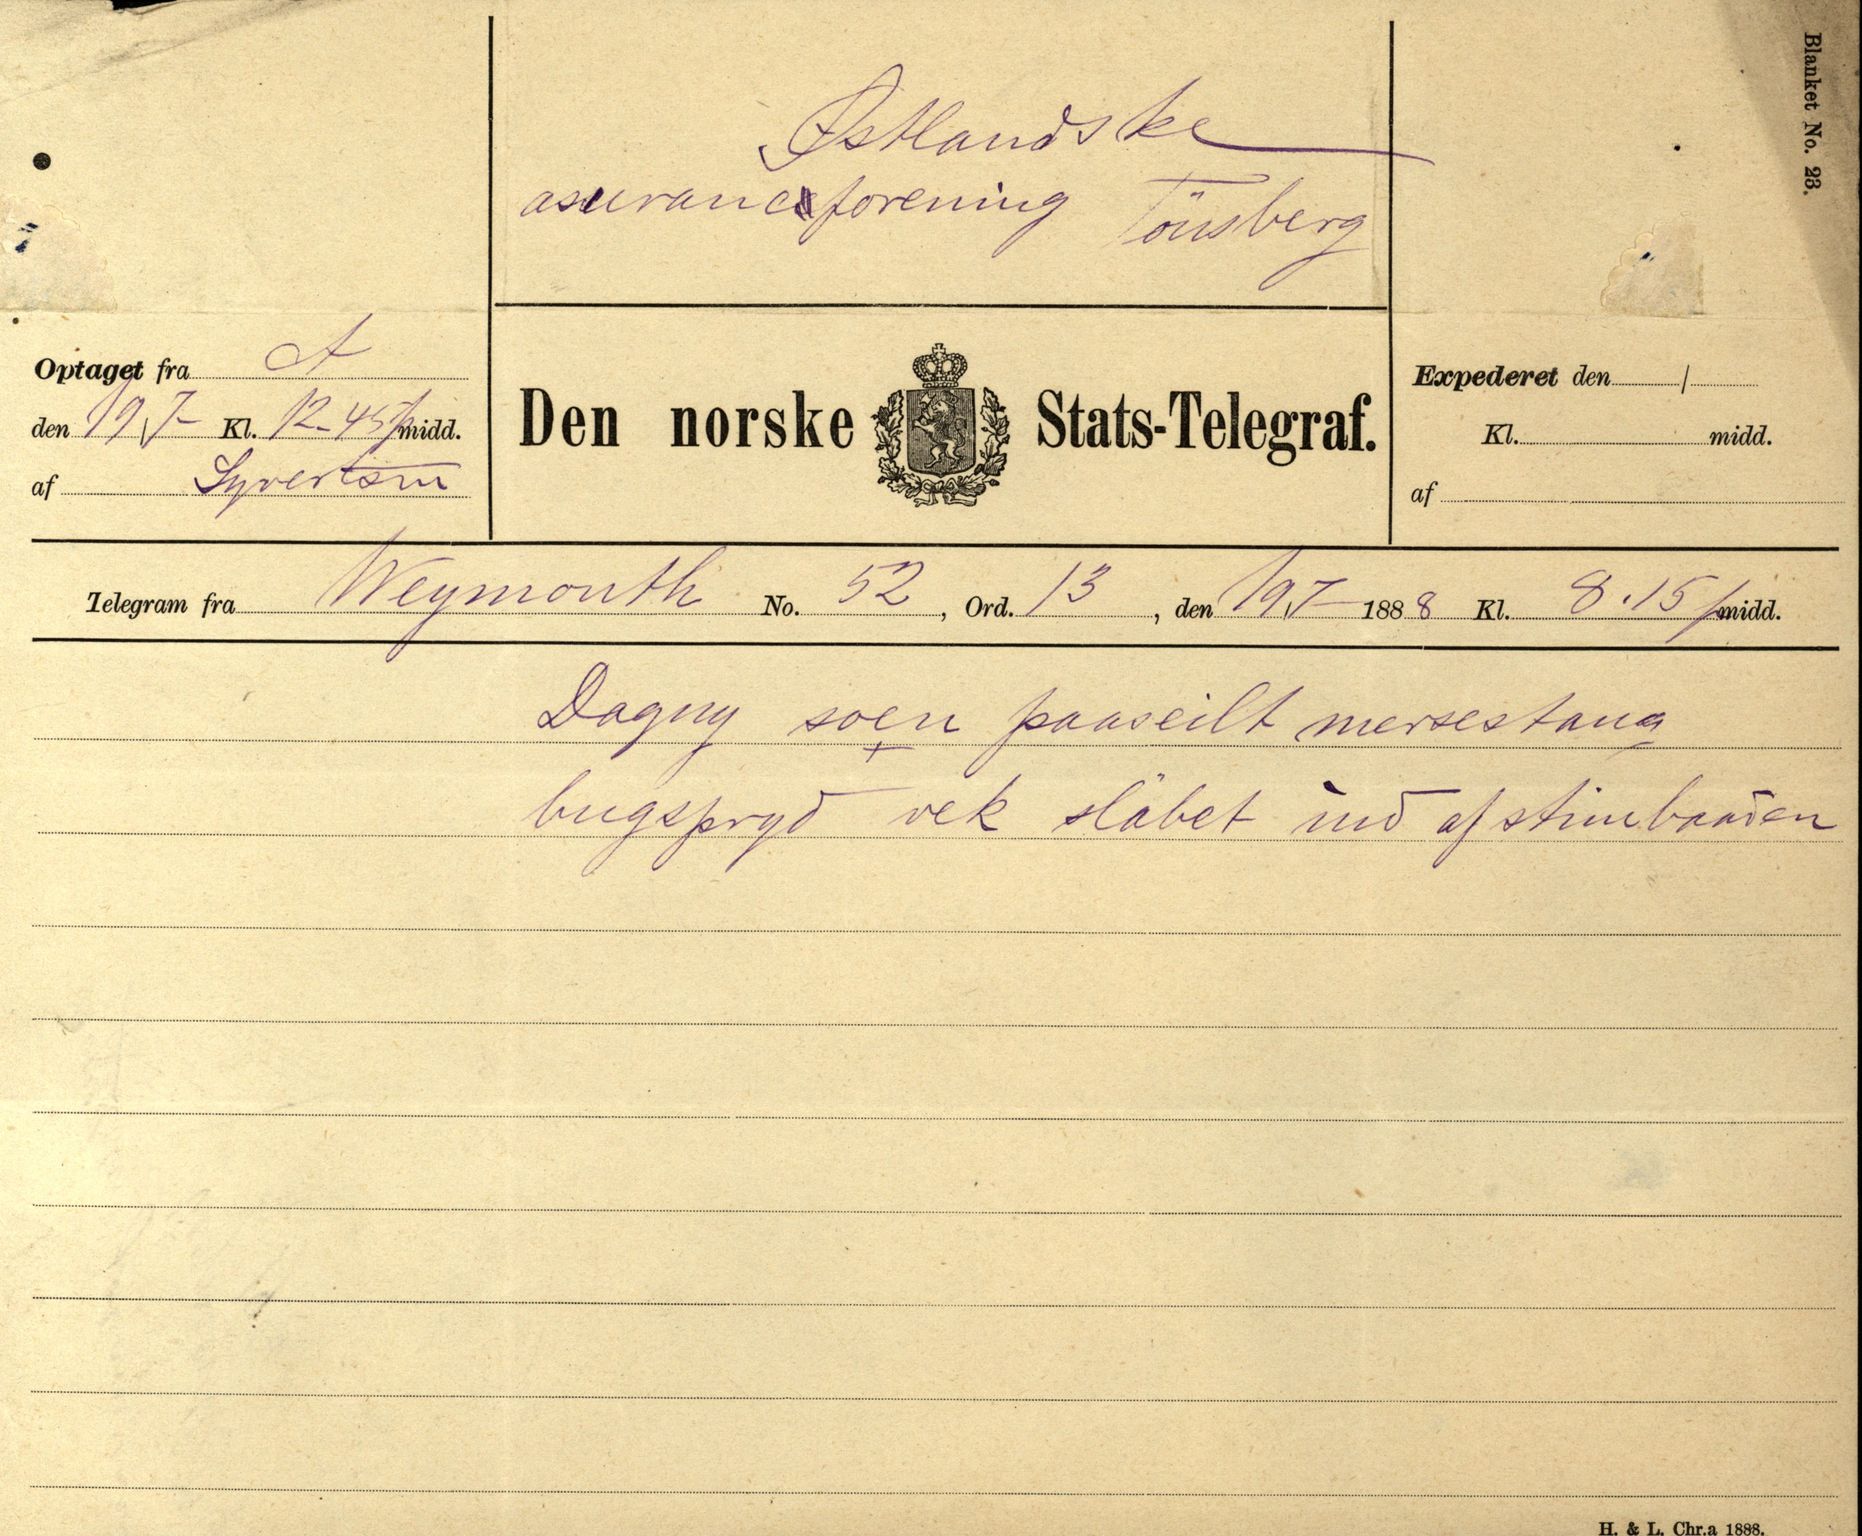 Blanket No. 23.
Østlandske
asuranceforening Tönsberg
Optaget fra A
den 19/7- Kl. 12-45 f midd.
af Syvertsen
Den norske Stats-Telegraf.
Expederet den /
Kl. midd.
af
Telegram fra Weymouth No. 52, Ord. 13, den 19/7- 1888 Kl. 8.15 f midd.
Dagny soen paaseilt mersestang
bugspryd vek släbet ind af stimbaaden
H. & L. Chr.a 1888.